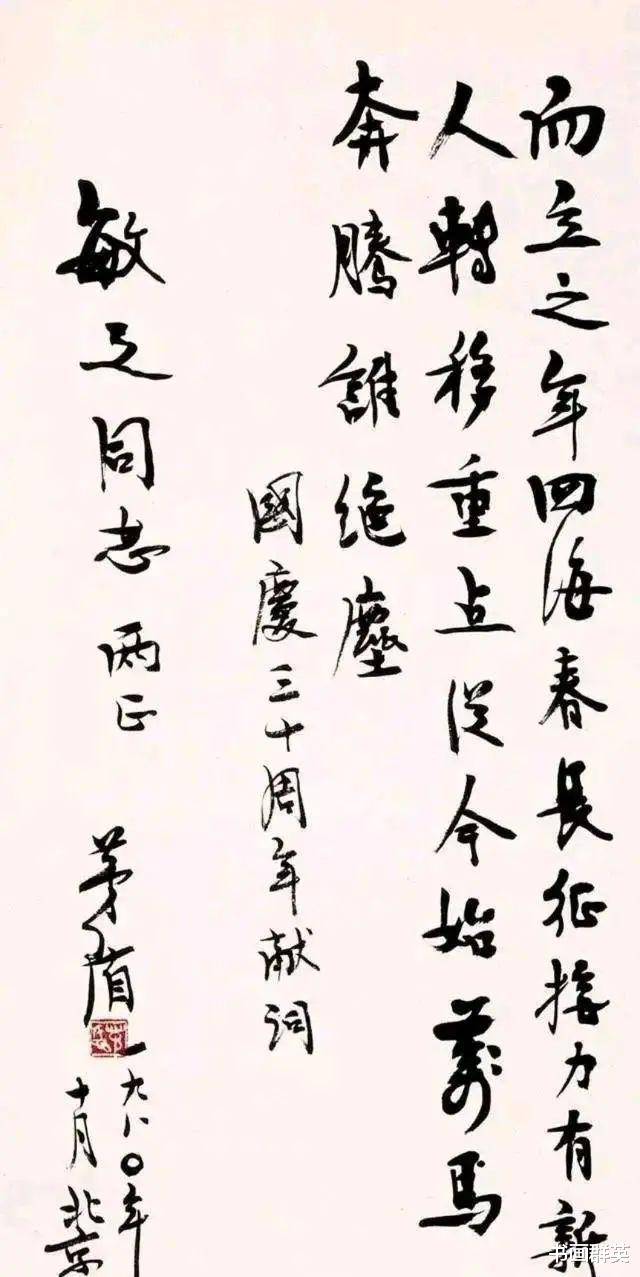 而立之年四海春長征接力有新
人轉移重点從今始萬馬
奔騰誰絶塵
國慶三十周年献詞
敏之同志两正
茅盾
一九八〇年
十月北京
书画群英